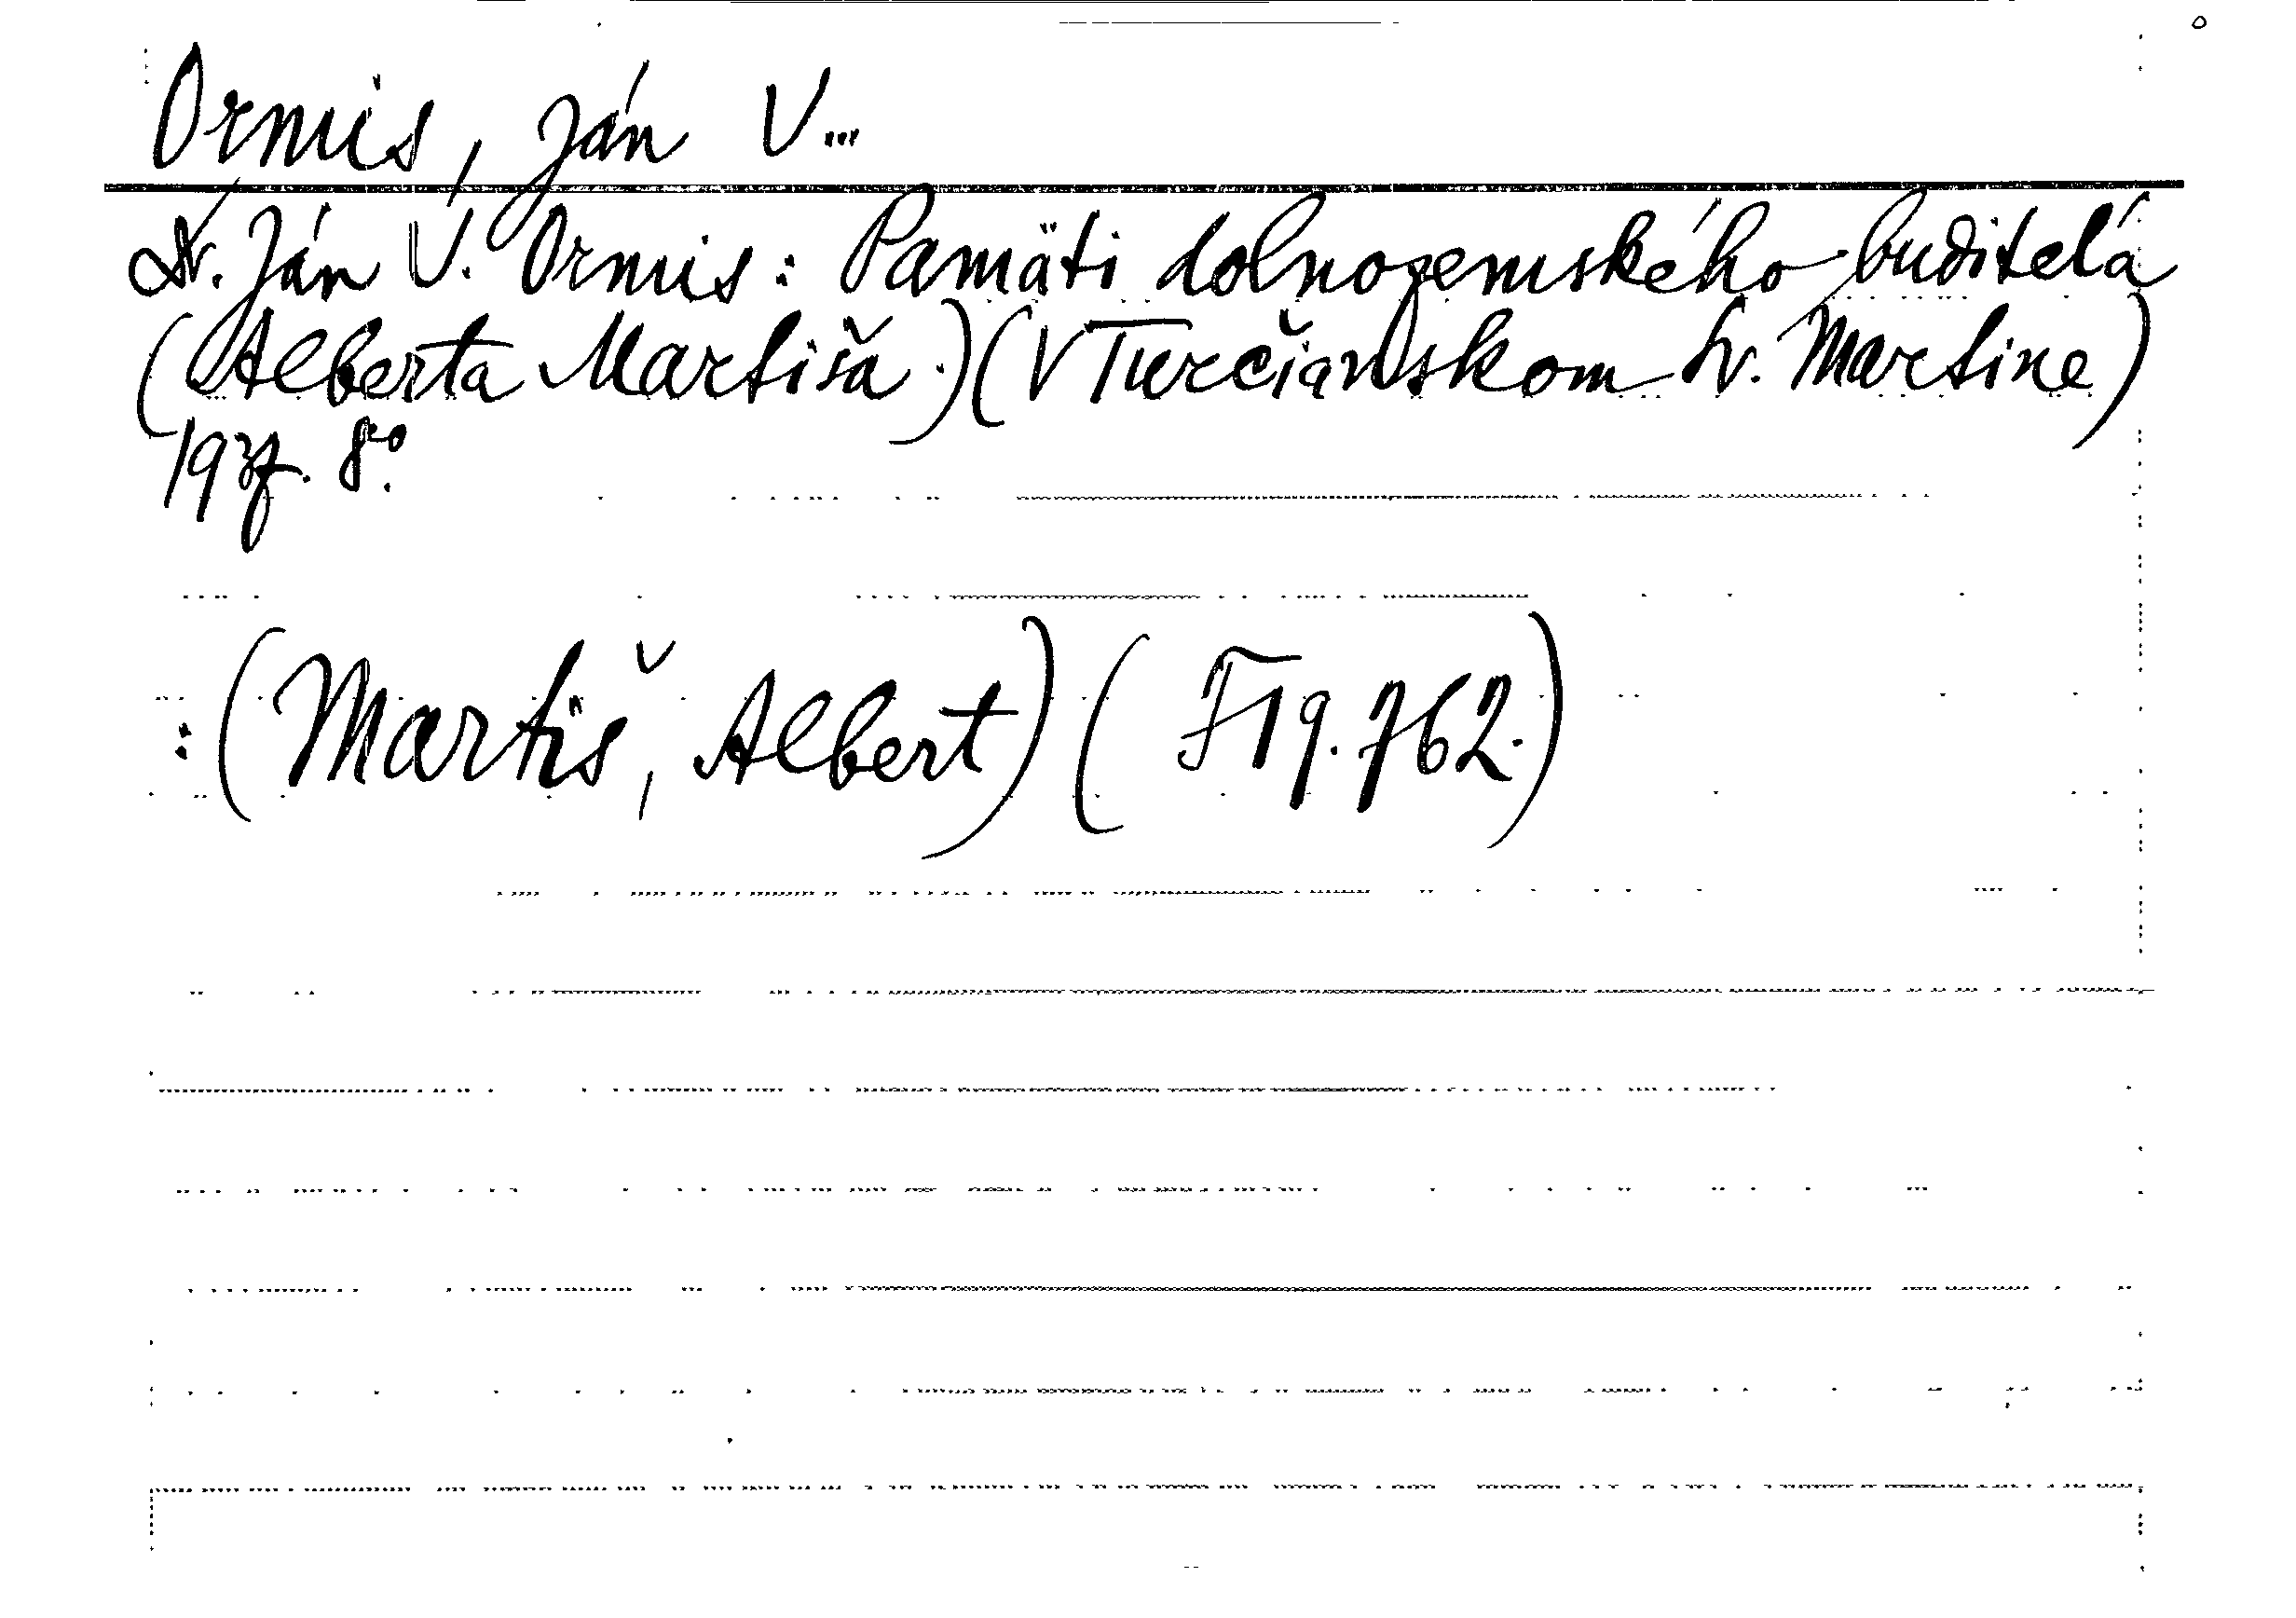 Ormis, Ján V...
Dr. Ján V. Ormis: Pamäti dolnozemského buditelá
(Alberta Martiša.) (V Turčianskom Sv. Martine)
1937. 8°.
: (Martiš, Albert) (F 19.762.)